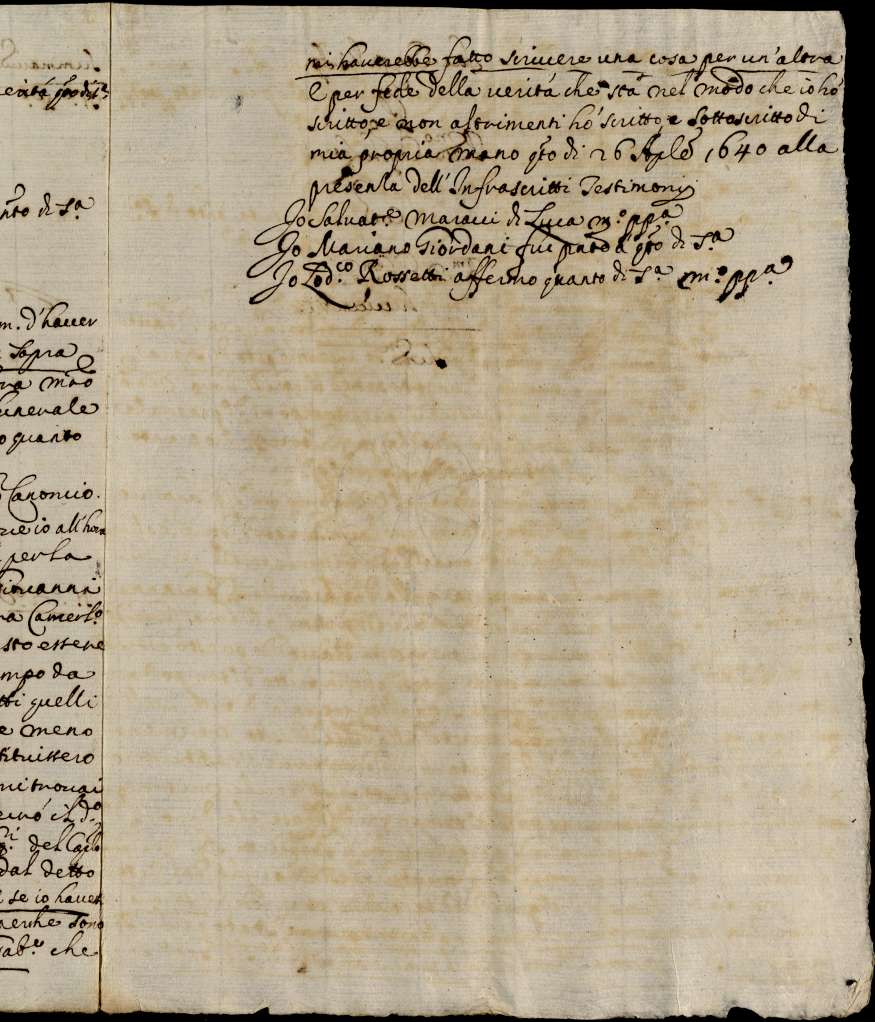 erità qto di sa
nto di sa
m. d'hauer
Sapra
ra mão
enerale
o quanto
Canonio.
re io all'hora
per la
iouanni
ra Camerlo
sto essere
mpo da
tti quelli
e meno
tituissero
mi trouai
il do
del
dal detto
se io hauer
perche sono
che
mi hauerebbe fatto scriuere una cosa per un'altra
E per fede della uerità che stà nel modo che io hò
scritto, e non altrimenti hò scritto, e sottoscritto di
mia propria mano qto di 26 Aple 1640 alla
presenza dell'Infrascritti Testimonij
Io Saluate Maracci di Luca mo ppa
Io Mariano Giordani fui pnte a qto di sa
Io Lodco Rossetti affermo quanto di sa mo ppa